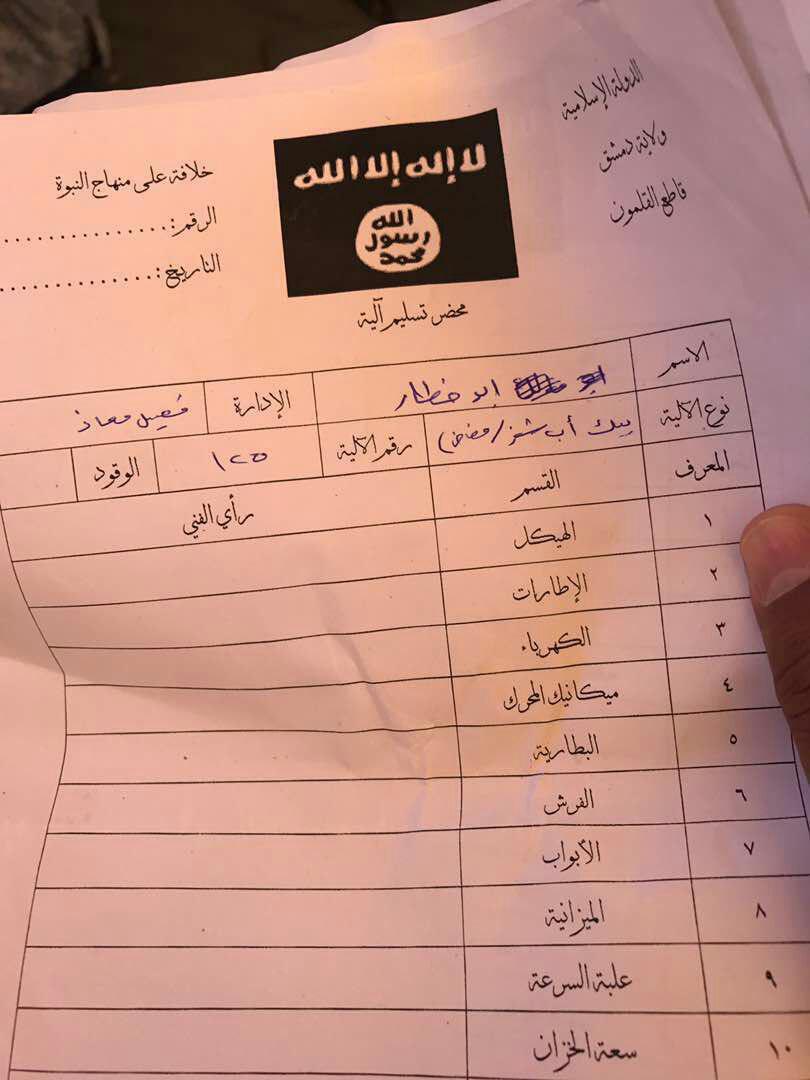 الدولة الإسلامية
ولاية دمشق
قاطع القلمون
لا إله إلا الله
الله
رسول
محمد
خلافة على منهاج النبوة
الرقم:................
التاريخ:..............
محضر تسليم آلية
الاسم ابو خطار الإدارة فصيل معاذ
نوع الآلية بيك أب شنز / رقم الآلية ١٢٥ الوقود
المعرف القسم رأي الفني
١ الهيكل
٢ الإطارات
٣ الكهرباء
٤ ميكانيك المحرك
٥ البطارية
٦ الفرش
٧ الأبواب
٨ الميزانية
٩ علبة السرعة
١٠ سعة الخزان